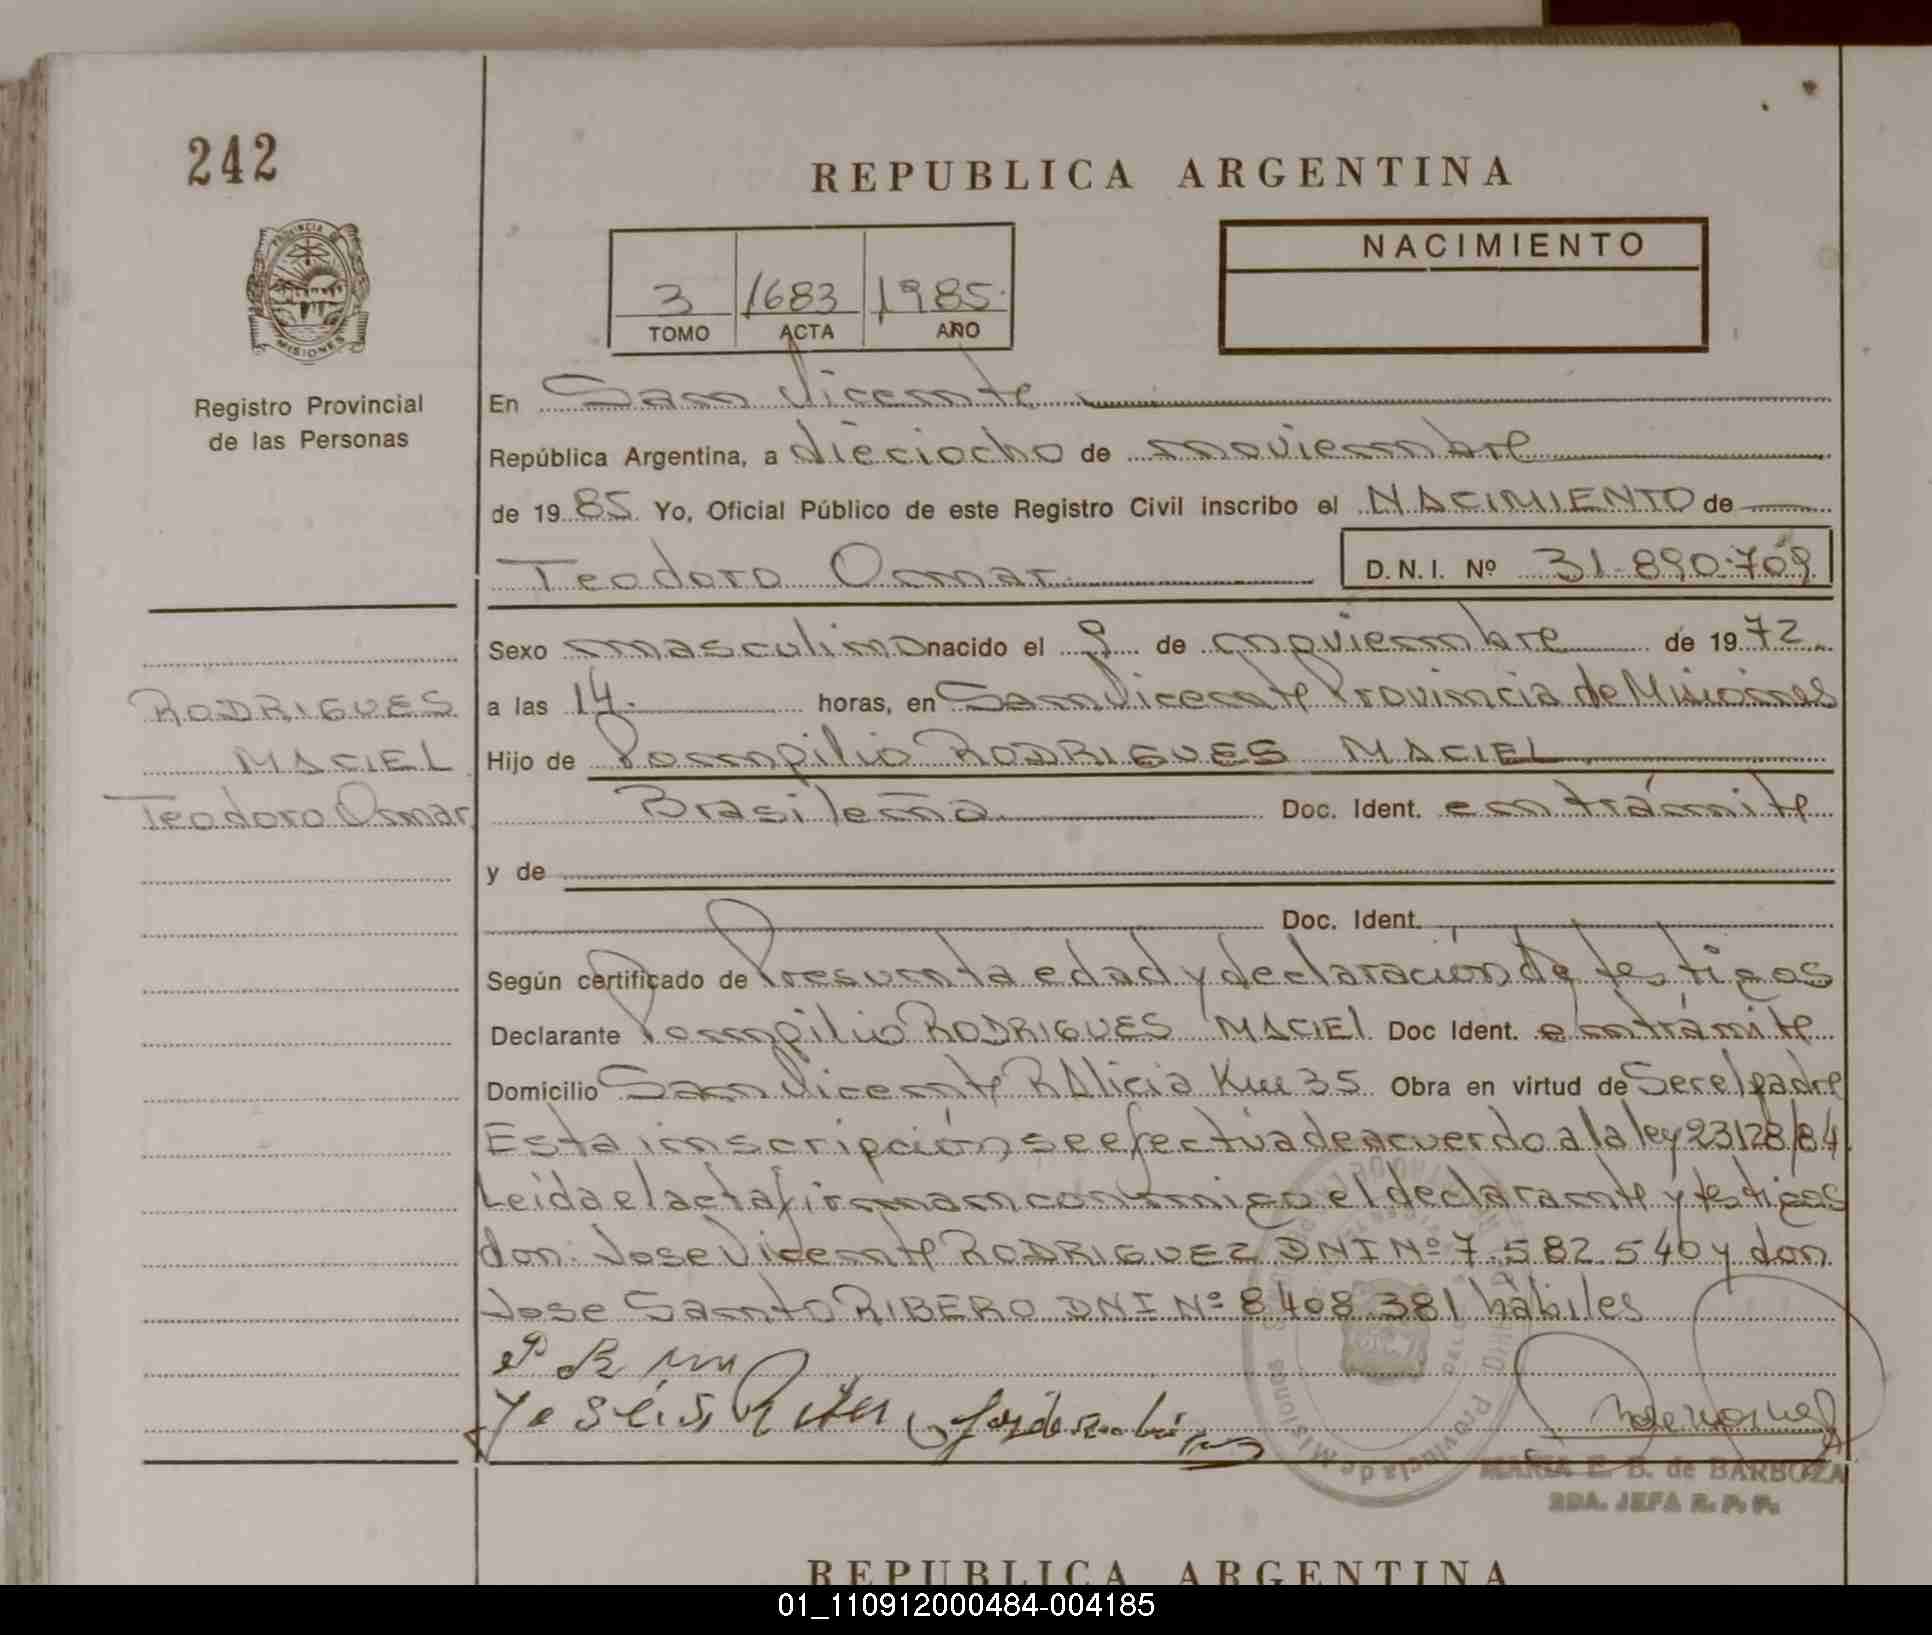 242
REPUBLICA ARGENTINA
PROVINCIA DE
MISIONES
NACIMIENTO
3 1683 1985
TOMO ACTA AÑO
Registro Provincial
de las Personas
En San Vicente
República Argentina, a dieciocho de noviembre
de 1985 Yo, Oficial Público de este Registro Civil inscribo el NACIMIENTO de
Teodoro Omar D.N.I. Nº 31.890.709
Sexo masculino nacido el 9 de noviembre de 1972
RODRIGUES
MACIEL
Teodoro Omar
a las 14. horas, en San Vicente Provincia de Misiones
Hijo de Pompilio RODRIGUES MACIEL
Brasileña Doc. Ident. en trámite
y de
Doc. Ident.
Según certificado de Presunta edad y declaración de testigos
Declarante Pompilio RODRIGUES MACIEL Doc Ident. en trámite
Domicilio San Vicente R Alicia Km 35 Obra en virtud de Ser el padre
Esta inscripción se efectúa de acuerdo a la ley 23128/84.
Leida el acta firman conmigo el declarante y testigos
don: Jose Vicente RODRIGUEZ DNI Nº 7.582.540 y don
Jose Santo RIBERO DNI Nº 8408.381 hábiles
Provincia de Misiones
MARIA E. B. de BARBOZA
2DA. JEFA R. P. P.
REPUBLICA ARGENTINA
01_110912000484-004185